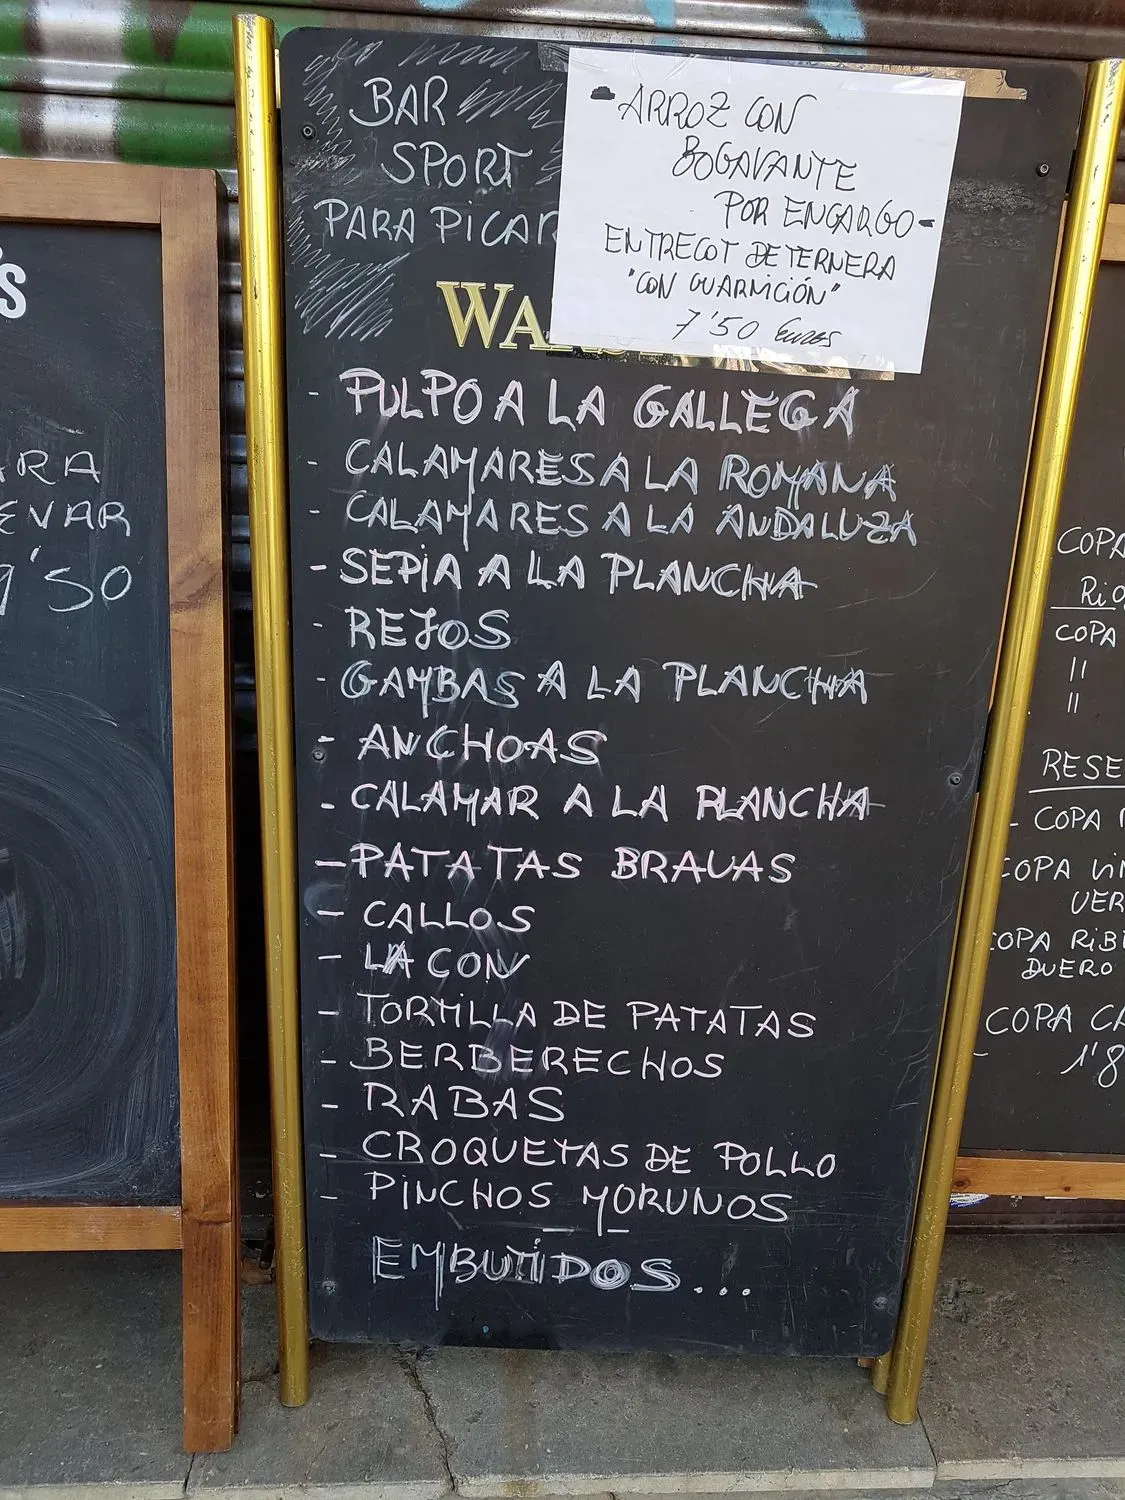 BAR
SPORT
PARA PICAR
WA
- ARROZ CON
BOGAVANTE
POR ENCARGO -
ENTRECOT DE TERNERA
"CON GUARNICIÓN"
7'50 Euros
- PULPO A LA GALLEGA
- CALAMARES A LA ROMANA
- CALAMARES A LA ANDALUZA
- SEPIA A LA PLANCHA
- REJOS
- GAMBAS A LA PLANCHA
- ANCHOAS
- CALAMAR A LA PLANCHA
- PATATAS BRAVAS
- CALLOS
- LACON
- TORTILLA DE PATATAS
- BERBERECHOS
- RABAS
- CROQUETAS DE POLLO
- PINCHOS MORUNOS
EMBUTIDOS...
'S
RA
EVAR
9'50
COPA
RiO
COPA
"
"
RESE
- COPA
COPA Vi
VER
COPA RiB
DUERO
- COPA CA
1'8